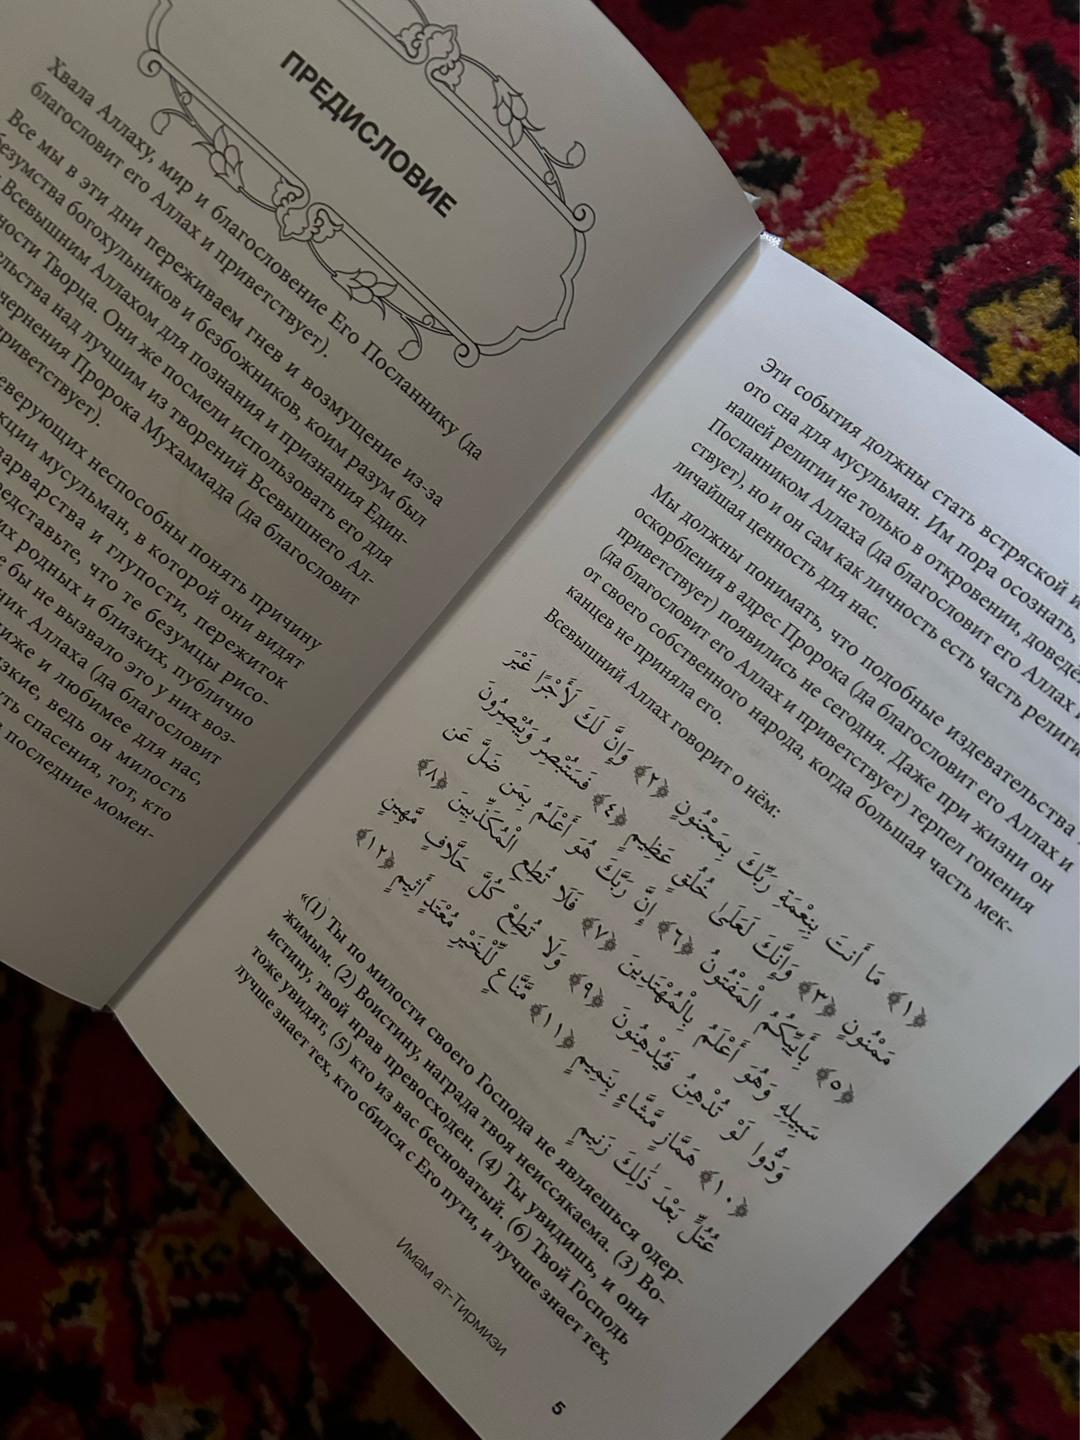 ПРЕДИСЛОВИЕ
Хвала Аллаху, мир и благословение Его Посланнику (да
благословит его Аллах и приветствует).
Все мы в эти дни переживаем гнев и возмущение из-за
безумства богохульников и безбожников, коим разум был
Всевышним Аллахом для познания и признания Един-
ности Творца. Они же посмели использовать его для
над лучшим из творений Всевышнего Ал-
Пророка Мухаммада (да благословит
приветствует).
неспособны понять причину
мусульман, в которой они видят
варварства и глупости, пережиток
что те безумцы рисо-
родных и близких, публично
бы не вызвало это у них воз-
Аллаха (да благословит
и любимее для нас,
ведь он милость
спасения, тот, кто
последние момен-
Эти события должны стать встряской и
ото сна для мусульман. Им пора осознать,
нашей религии не только в откровении,
Посланником Аллаха (да благословит его Аллах
ствует), но и он сам как личность есть часть
личайшая ценность для нас.
Мы должны понимать, что подобные издевательства
оскорбления в адрес Пророка (да благословит его Аллах и
приветствует) появились не сегодня. Даже при жизни он
(да благословит его Аллах и приветствует) терпел гонения
от своего собственного народа, когда большая часть мек-
канцев не приняла его.
Всевышний Аллах говорит о нём:
﴿١﴾ مَا أَنتَ بِنِعْمَةِ رَبِّكَ بِمَجْنُونٍ ﴿٢﴾ وَإِنَّ لَكَ لَأَجْرًا غَيْرَ
مَمْنُونٍ ﴿٣﴾ وَإِنَّكَ لَعَلَىٰ خُلُقٍ عَظِيمٍ ﴿٤﴾ فَسَتُبْصِرُ وَيُبْصِرُونَ
﴿٥﴾ بِأَييِّكُمُ الْمَفْتُونُ ﴿٦﴾ إِنَّ رَبَّكَ هُوَ أَعْلَمُ بِمَن ضَلَّ عَن
سَبِيلِهِ وَهُوَ أَعْلَمُ بِالْمُهْتَدِينَ ﴿٧﴾ فَلَا تُطِعِ الْمُكَذِّبِينَ ﴿٨﴾
وَدُّوا لَوْ تُدْهِنُ فَيُدْهِنُونَ ﴿٩﴾ وَلَا تُطِعْ كُلَّ حَلَّافٍ مَّهِينٍ
﴿١٠﴾ هَمَّازٍ مَّشَّاءٍ بِنَمِيمٍ ﴿١١﴾ مَّنَّاعٍ لِّلْخَيْرِ مُعْتَدٍ أَثِيمٍ ﴿١٢﴾
عُتُلٍّ بَعْدَ ذَٰلِكَ زَنِيمٍ
«(1) Ты по милости своего Господа не являешься одер-
жимым. (2) Воистину, награда твоя неиссякаема. (3) Во-
истину, твой нрав превосходен. (4) Ты увидишь, и они
тоже увидят, (5) кто из вас бесноватый. (6) Твой Господь
лучше знает тех, кто сбился с Его пути, и лучше знает тех,
Имам ат-Тирмизи
5